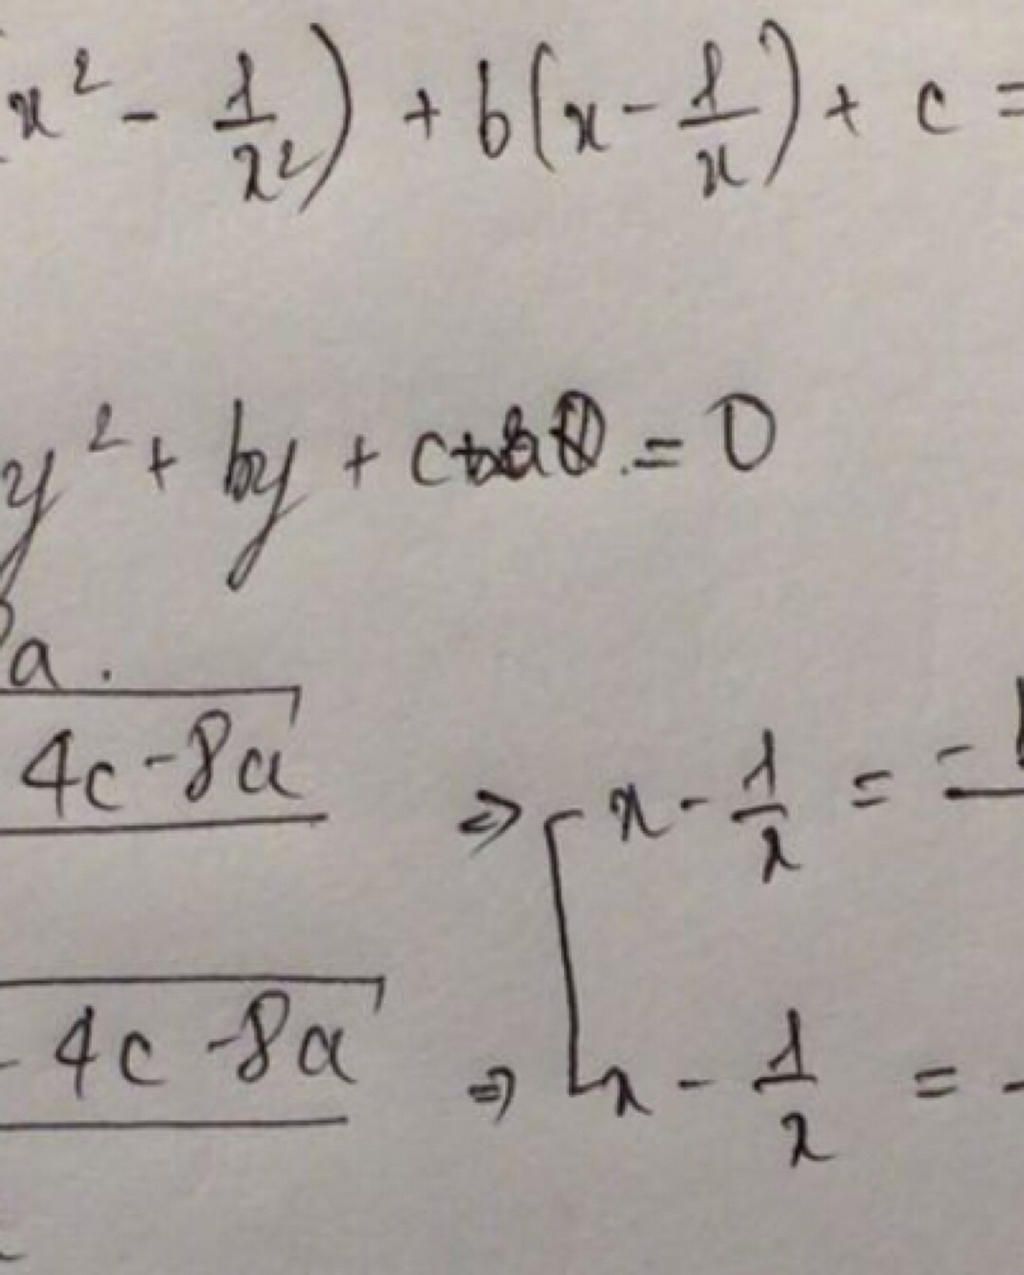 (x² - 1/x²) + b(x - 1/x) + c =
y² + by + c = 0
a.
4c - 8a ⇒ [ x - 1/x = -
- 4c - 8a ⇒ x - 1/x = -